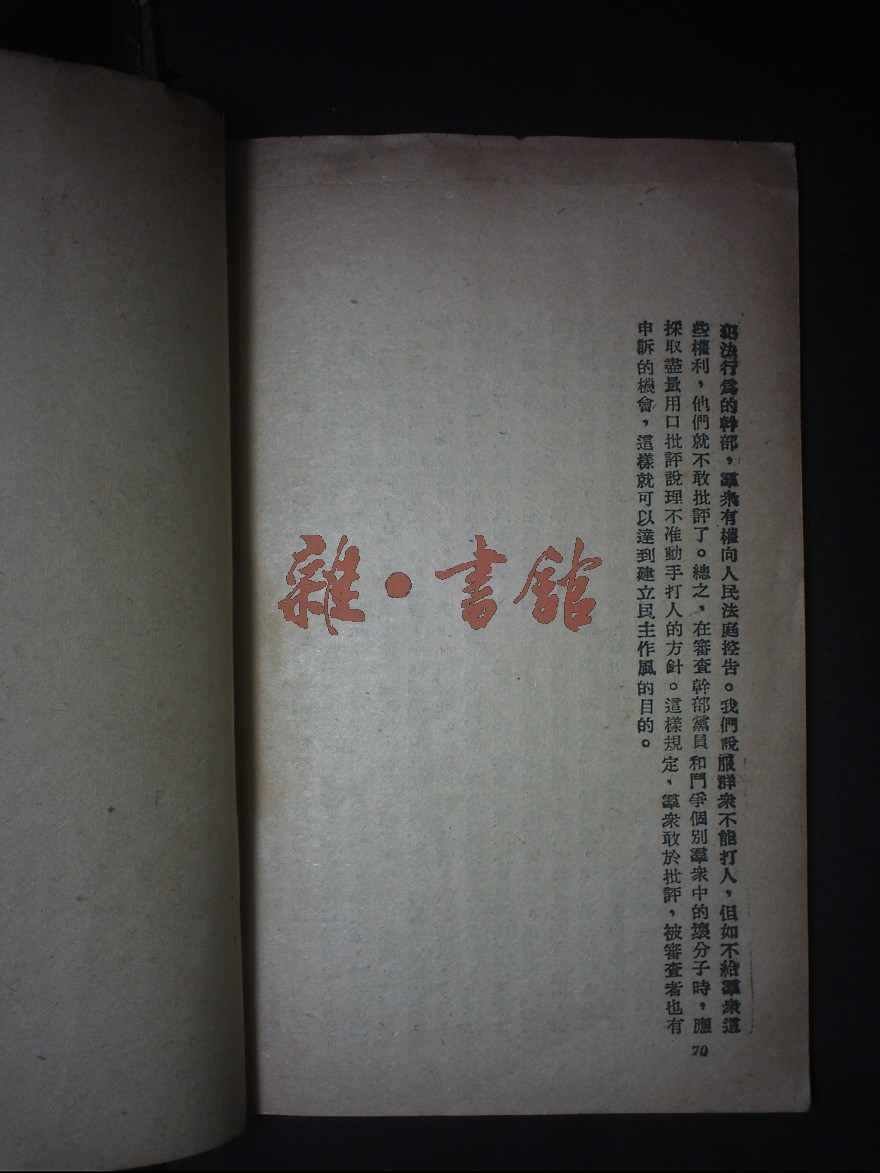 犯法行爲的幹部，羣衆有權向人民法庭控告。我們說服群衆不能打人，但如不給羣衆這
些權利，他們就不敢批評了。總之，在審查幹部黨員和鬥爭個別羣衆中的壞分子時，應
採取盡量用口批評說理不准動手打人的方針。這樣規定，羣衆敢於批評，被審查者也有
申訴的機會，這樣就可以達到建立民主作風的目的。
70
雜·書館